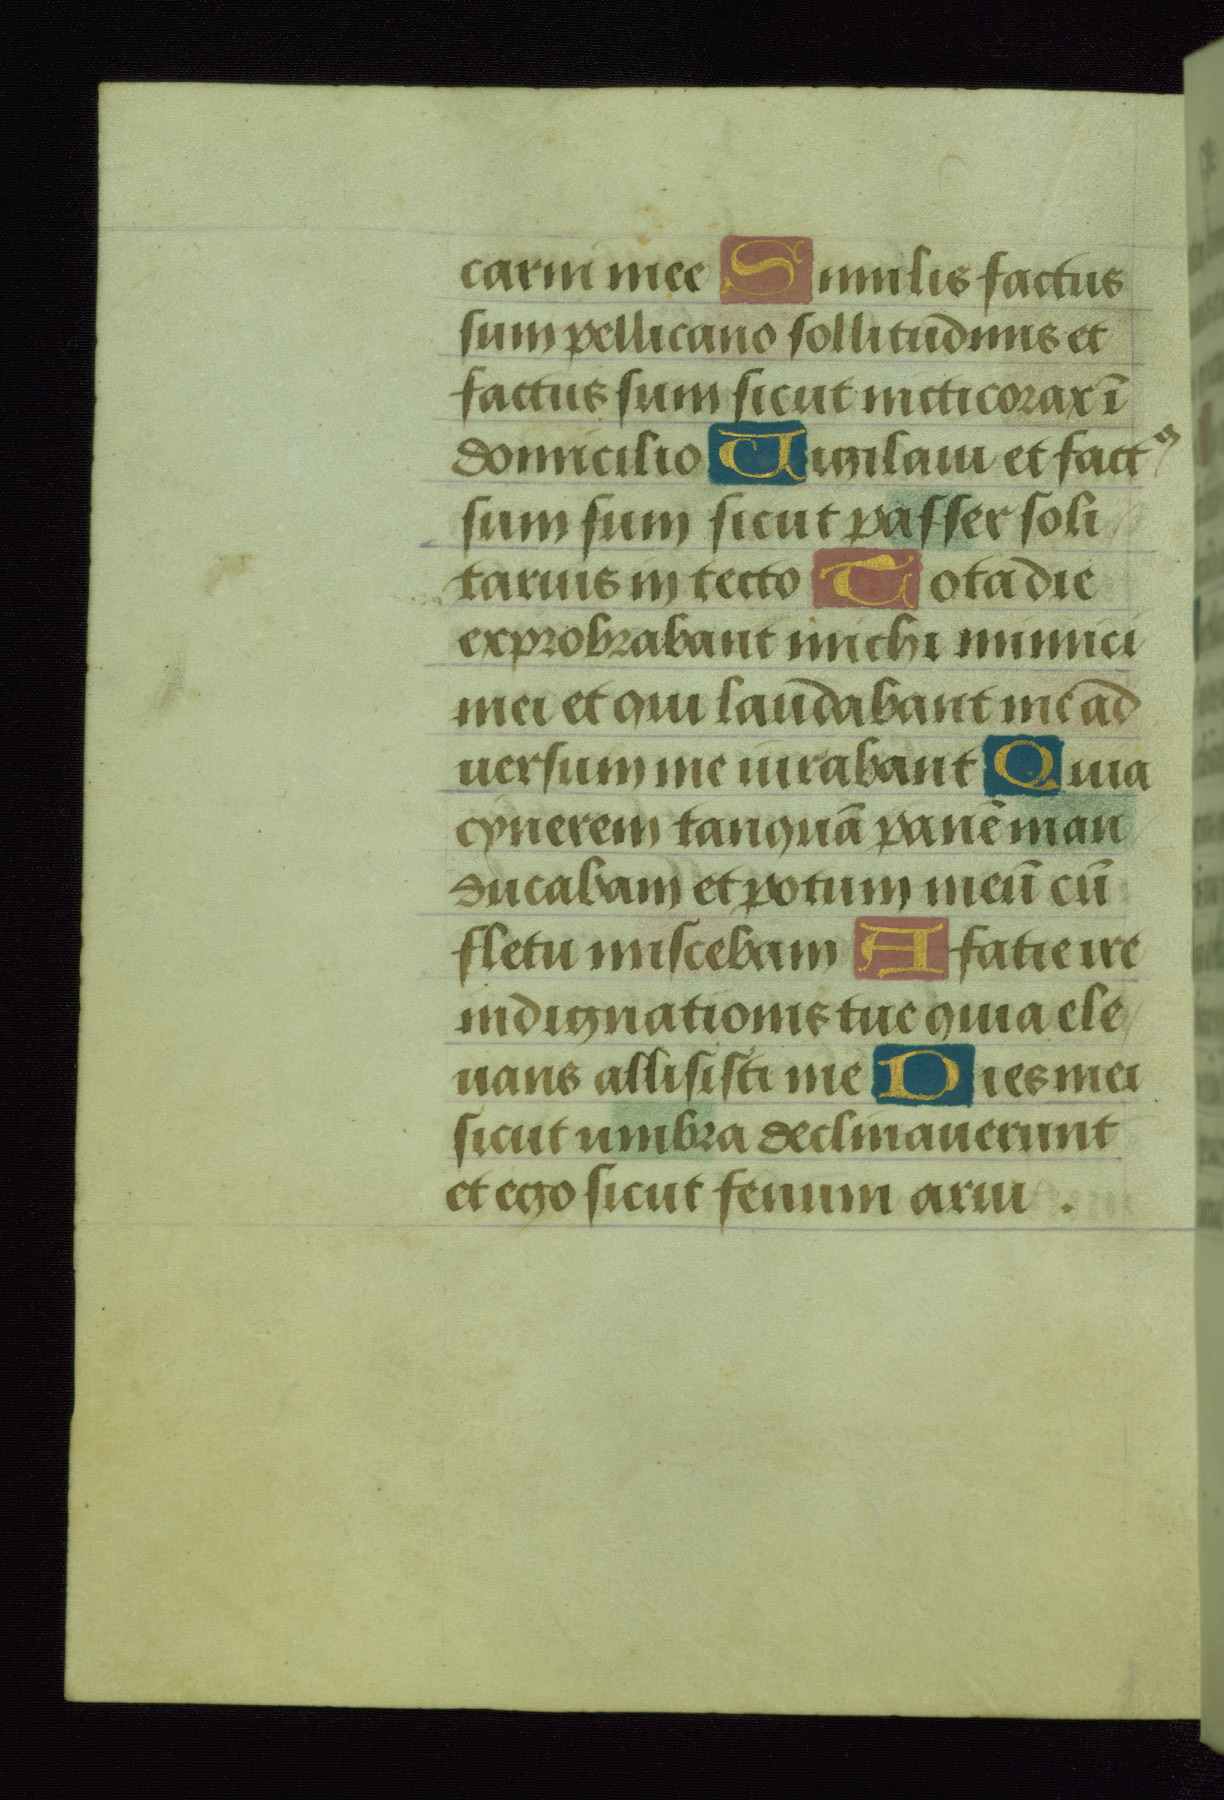 carni mee Similis factus
sum pellicano sollitudinis et
factus sum sicut nicticorax ī
domicilio Uigilaui et factꝰ
sum sum sicut passer soli
tarius in tecto Tota die
exprobrabant michi inimici
mei et qui laudabant me ad
uersum me iurabant Quia
cynerem tanquā panē man
ducabam et potum meū cū
fletu miscebam A fatie ire
indignationis tue quia ele
uans allisisti me Dies mei
sicut umbra declinauerunt
et ego sicut fenum arui .